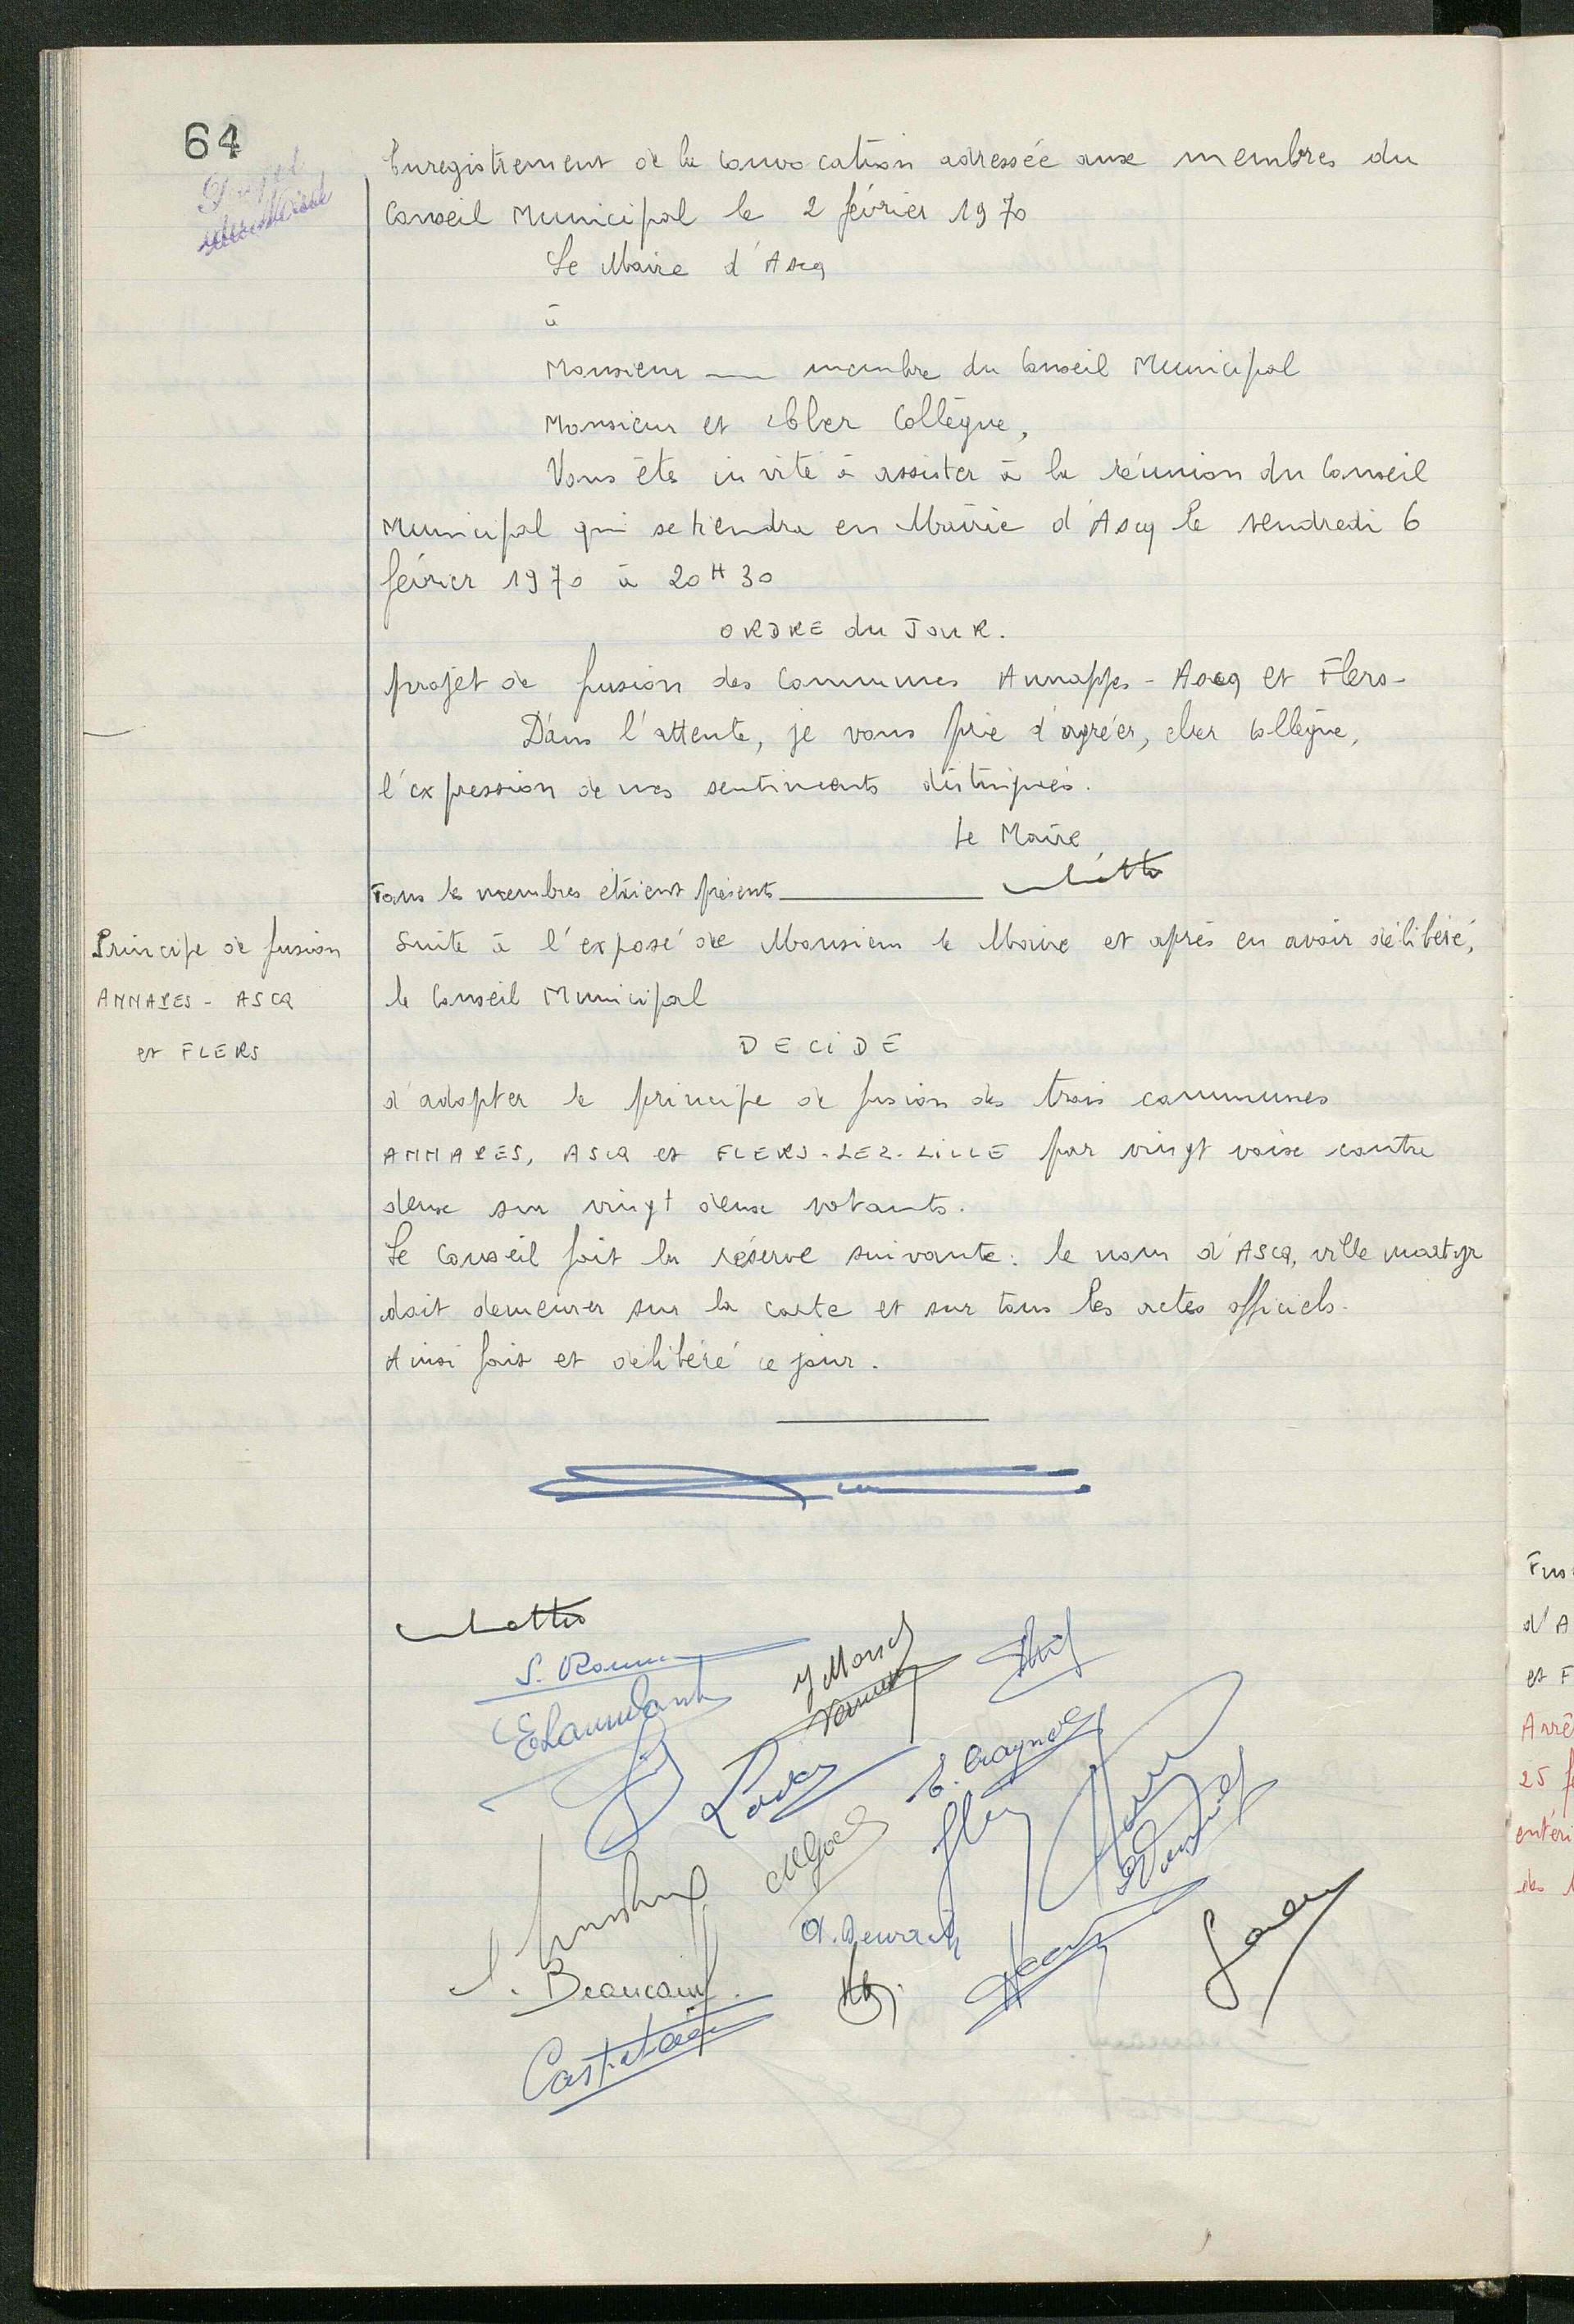 64
Enregistrement de la convocation adressée aux membres du
Conseil Municipal le 2 février 1970
Le Maire d'Ascq
à
Monsieur — membre du Conseil Municipal
Monsieur et Cher Collègue,
Vous êtes invité à assister à la réunion du Conseil
Municipal qui se tiendra en Mairie d'Ascq le vendredi 6
février 1970 à 20 H 30
ORDRE du JouR.
projet de fusion des Communes Annappes - Ascq et Flers -
Dans l'attente, je vous prie d'agréer, cher collègue,
l'expression de mes sentiments distingués.
Le Maire
Tous les membres étaient présents
Principe de fusion
ANNAPES - ASCQ
et FLERS
Suite à l'exposé de Monsieur le Maire et après en avoir délibéré,
le Conseil Municipal
DECIDE
d'adopter le principe de fusion des trois communes
ANNAPES, ASCQ et FLERS-LEZ-LILLE par vingt voix contre
deux sur vingt deux votants.
Le Conseil fait la réserve suivante : le nom d'ASCQ, ville martyr
doit demeurer sur la carte et sur tous les actes officiels.
Ainsi fait et délibéré ce jour.
Beaucamp
Castelain
Fus
d'A
et F
Arrê
25 f
entéri
des